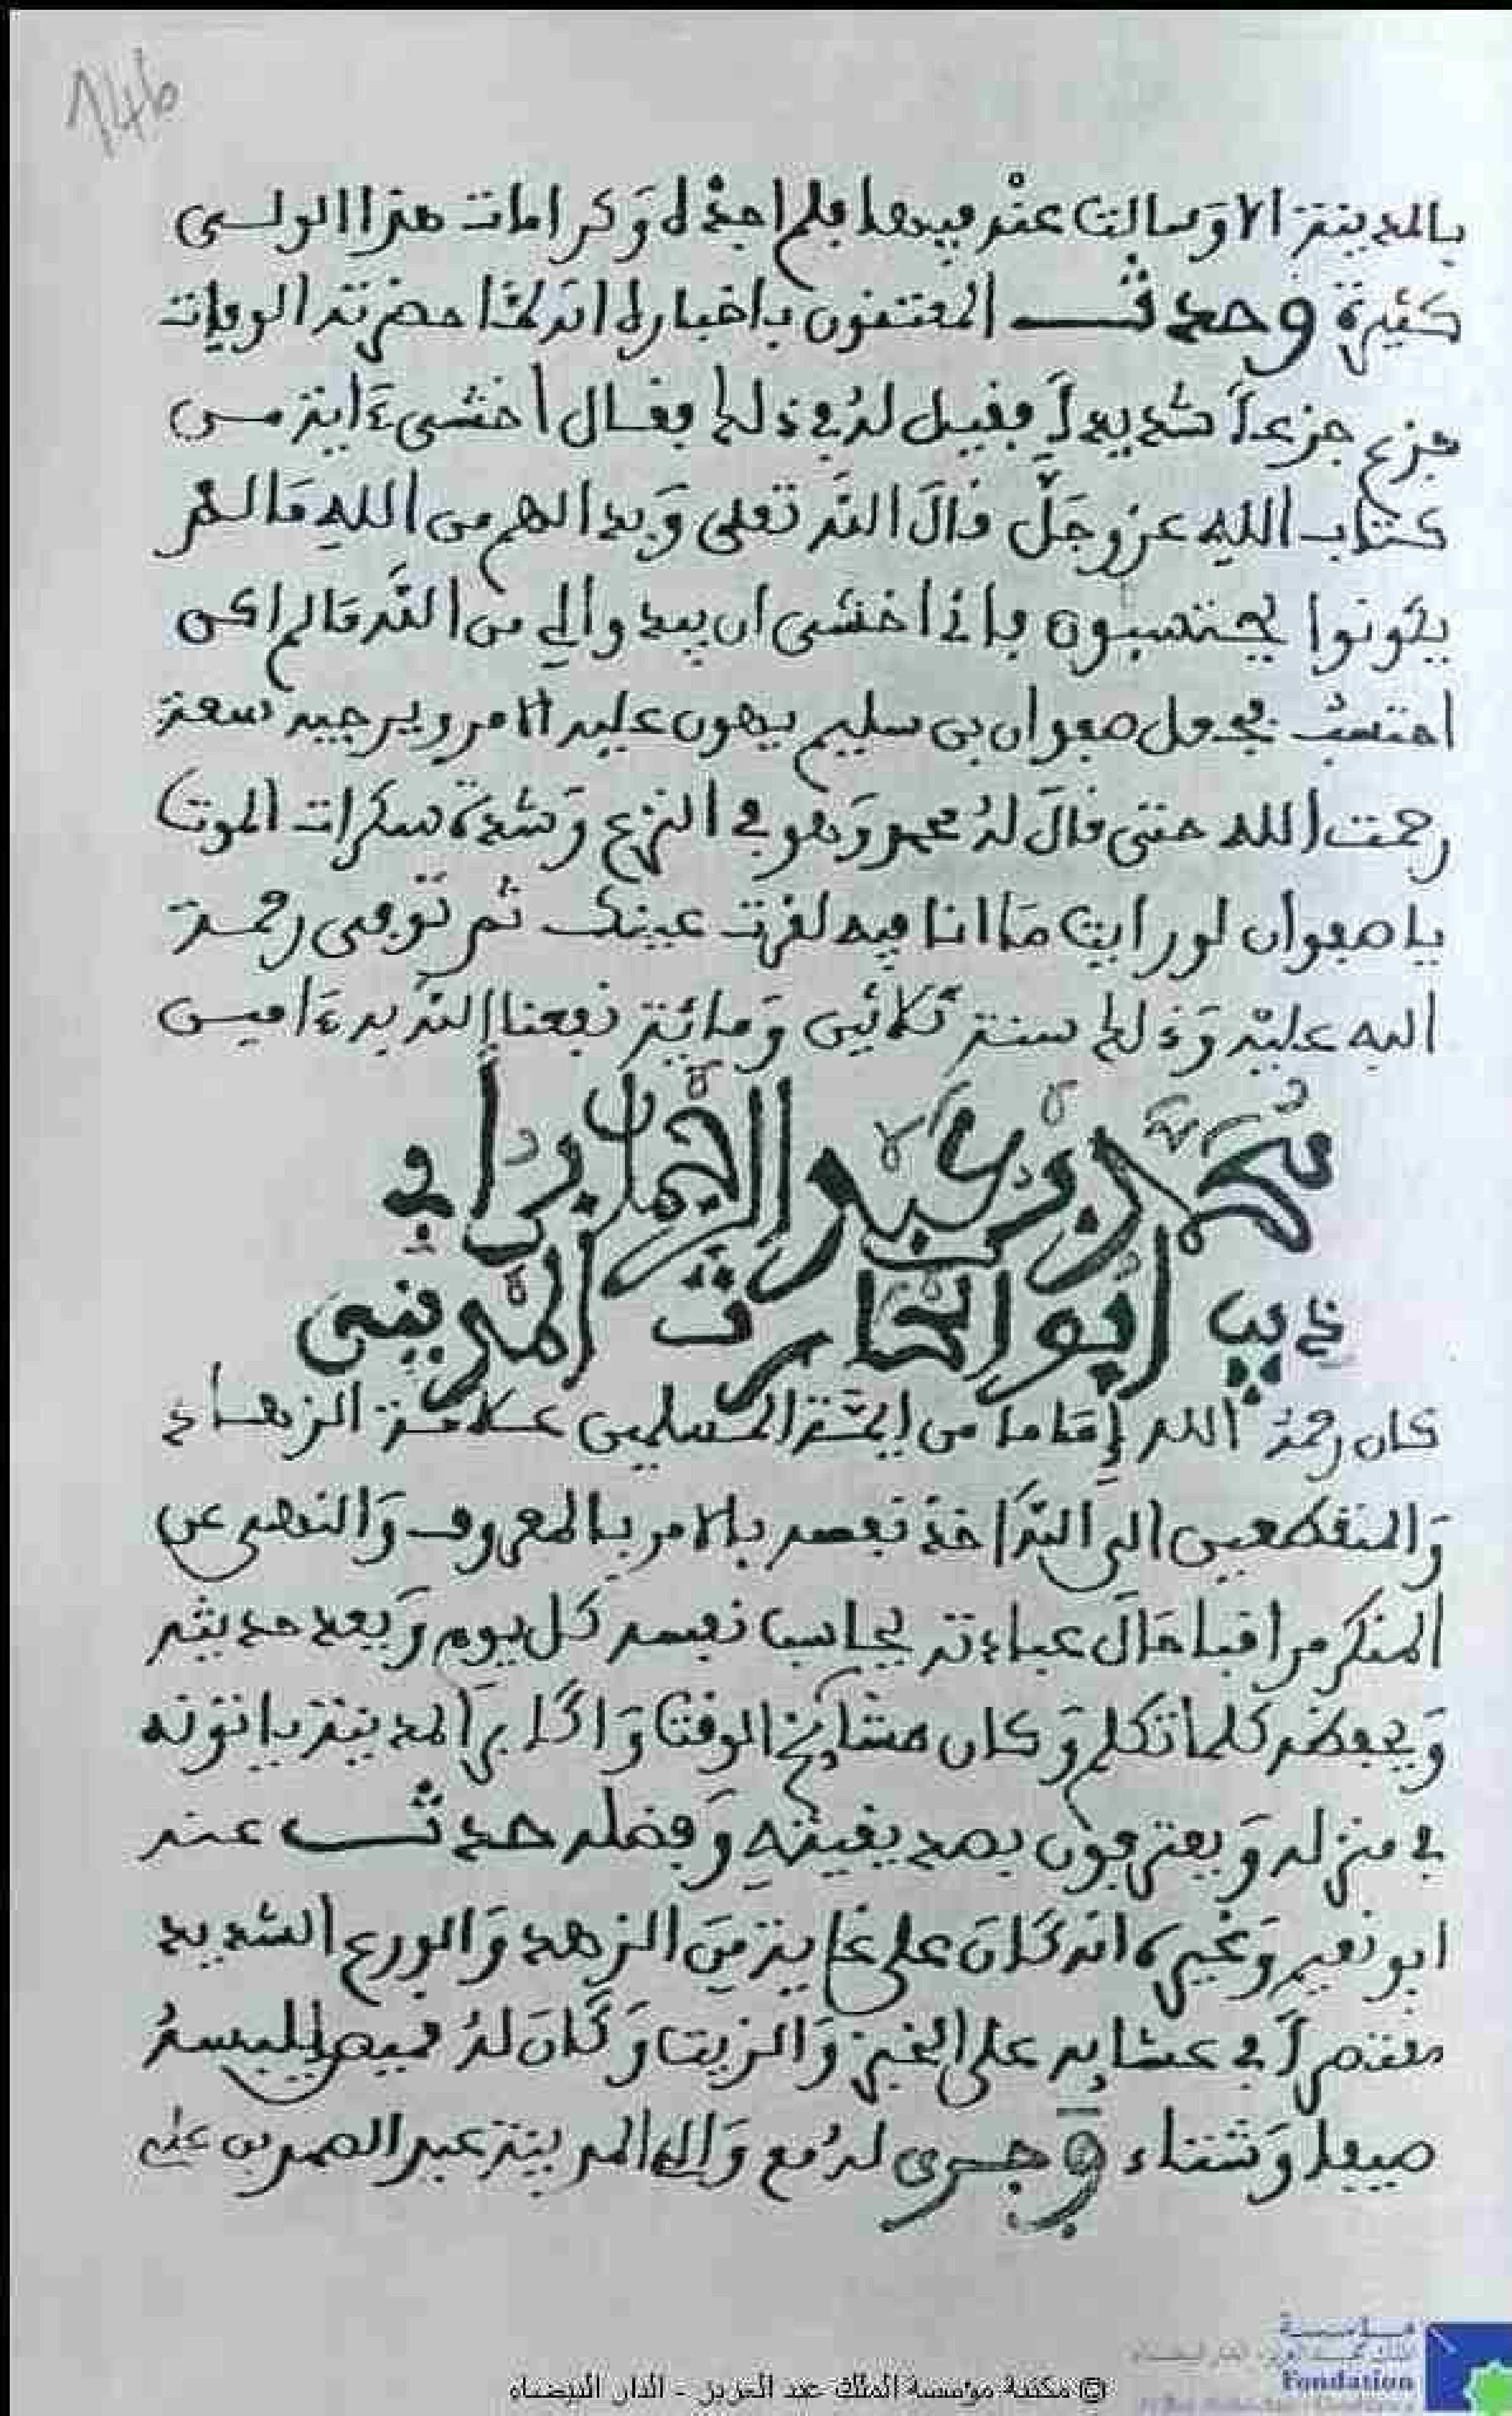 146
بالمدينة الا وسالت عنه فيها فلم اجده وكرامات هذا الولي
كثيرة وحدث المعتنون باخباره انه لما حضرته الوفات
جزع جزعا شديدا فقيل له في ذلك فقال اخشى ءاية من
كتاب الله عز وجل قال الله تعلى وبدا لهم من الله ما لم
يكونوا يحتسبون فاني اخشى ان يبدو الي من الله ما لم اكن
احتسب فجعل صفوان بن سليم يهون عليه الامر ويرجيه سعة
رحمت الله حتى قال له محمد وهو في النزع وشدة سكرات الموت
يا صفوان لو رايت ما انا فيه لقرت عينك ثم توفى رحمة
الله عليه وذلك سنة ثلاثين ومائة نفعنا الله به ءامين
محمد بن عبد الرحمان بن ابي
ذيب ابو الحارث المديني
كان رحمه الله إماما من ايمة المسلمين علامة الزهاد
والمنقطعين الى الله اخذ نفسه بالامر بالمعروف والنهي عن
المنكر مراقبا حال عباءته يحاسب نفسه كل يوم ويعد حديثه
ويحفظه كلما تكلم وكان مشايخ الوقت واكابر المدينة ياتونه
في منزله ويعترفون بصديقيته وفضله حدث عنه
ابو نعيم وغيره انه كان على غاية من الزهد والورع الشديد
مقتصرا في عشايه على الخبز والزيت وكان له قميص يلبسه
صيفا وشتاء وجرى له مع والي المدينة عبد الصمد بن علي
© مكتبة مؤسسة الملك عبد العزيز - الدار البيضاء
مؤسسة
Fondation